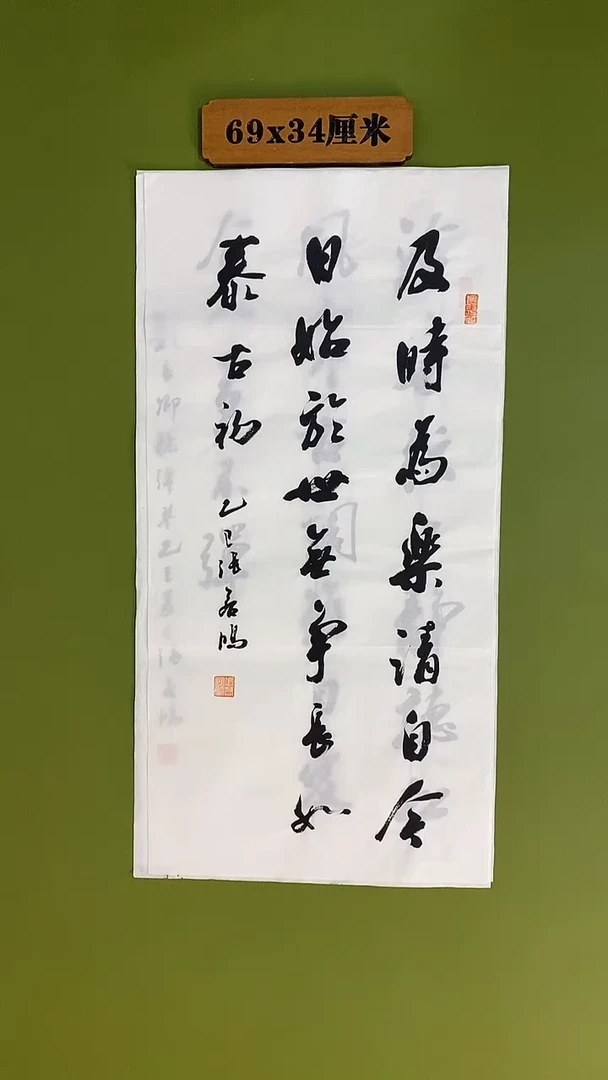 69x34厘米
及時為樂請自今
日始於世無爭長如
泰古初
乙巳張